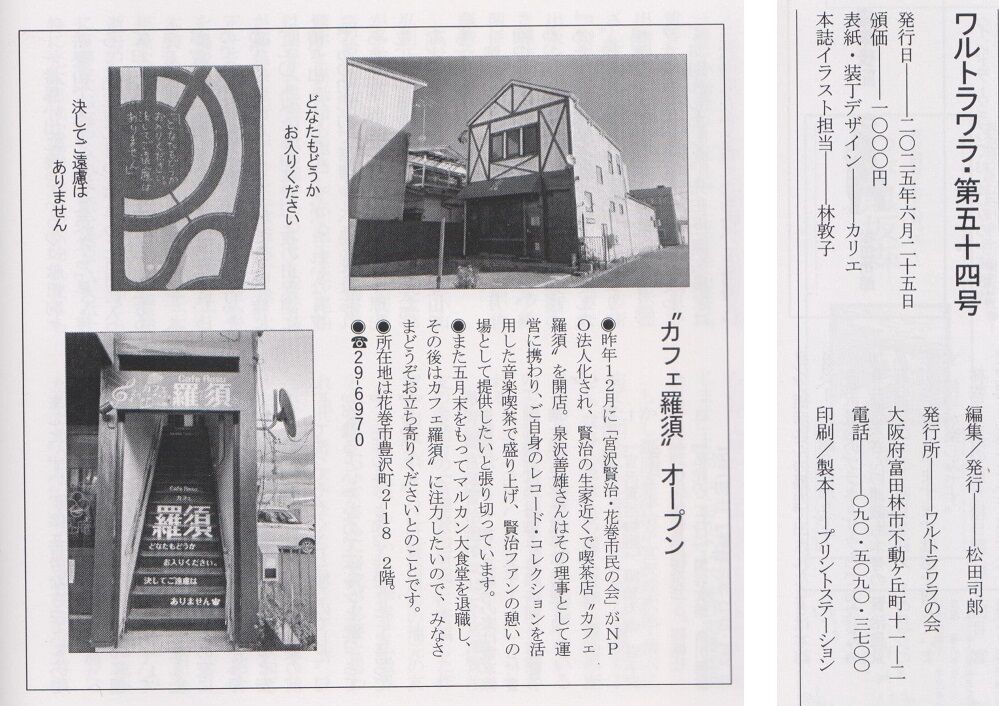 ワルトラワラ・第五十四号
発行日――二〇二五年六月二十五日
頒価――一〇〇〇円
表紙・装丁デザイン――カリエ
本誌イラスト担当――林敦子
編集／発行――松田司郎
発行所――ワルトラワラの会
大阪府富田林市不動ヶ丘町十一―二
電話――〇九〇・五〇九〇・三七〇〇
印刷／製本――プリントステーション
〝カフェ羅須〟オープン
●昨年12月に「宮沢賢治・花巻市民の会」がNP
O法人化され、賢治の生家近くで喫茶店〝カフェ
羅須〟を開店。泉沢善雄さんはその理事として運
営に携わり、ご自身のレコード・コレクションを活
用した音楽喫茶で盛り上げ、賢治ファンの憩いの
場として提供したいと張り切っています。
●また五月末をもってマルカン大食堂を退職し、
その後はカフェ羅須〟に注力したいので、みなさ
まどうぞお立ち寄りくださいとのことです。
●所在地は花巻市豊沢町2-18　2階。
●☎29-6970
どなたもどうか
お入りください
決してご遠慮は
ありません
どなたもどうか
お入りください。
決してご遠慮は
ありません
Cafe Rasu
カフェ
羅須
Cafe Rasu
カフェ
羅須
どなたもどうか
お入りください。
決してご遠慮は
ありません